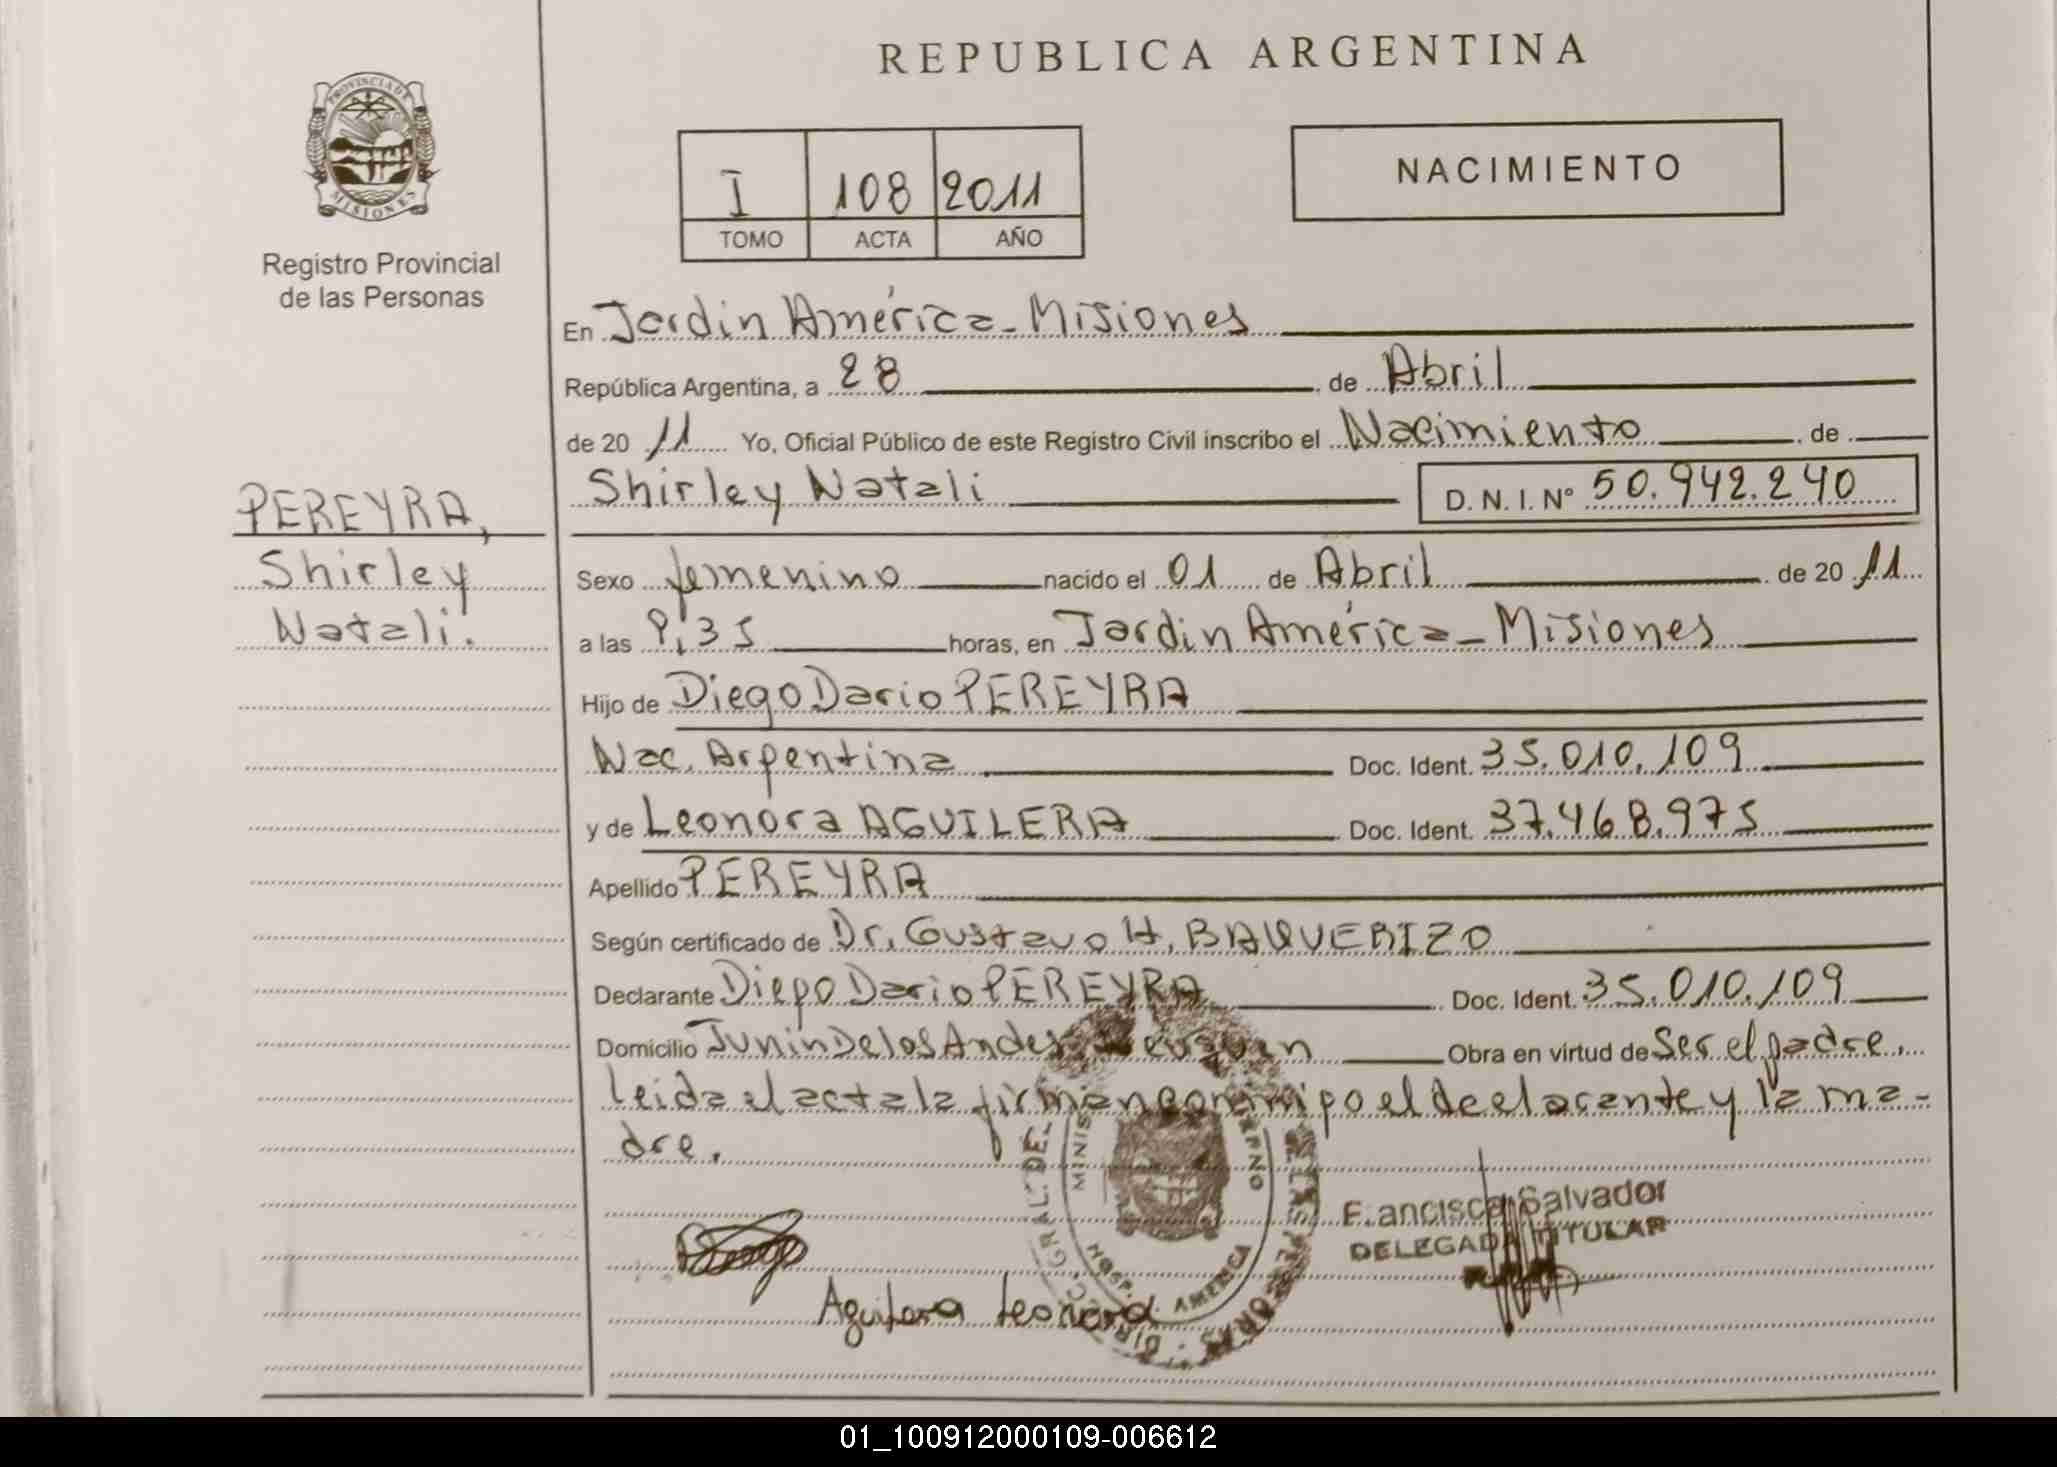 REPUBLICA ARGENTINA
PROVINCIA DE MISIONES
Registro Provincial
de las Personas
I 108 2011
TOMO ACTA AÑO
NACIMIENTO
En Jardin América - Misiones
República Argentina, a 28 de Abril
de 20 11 Yo, Oficial Público de este Registro Civil inscribo el Nacimiento de
Shirley Natali D. N. I. N° 50.942.240
PEREYRA,
Shirley
Natali.
Sexo femenino nacido el 01 de Abril de 20 11
a las 9:35 horas, en Jardin América - Misiones
Hijo de Diego Dario PEREYRA
Nac. Argentina Doc. Ident. 35.010.109
y de Leonora AGUILERA Doc. Ident. 37.468.975
Apellido PEREYRA
Según certificado de Dr. Gustavo H. BAQUERIZO
Declarante Diego Dario PEREYRA Doc. Ident. 35.010.109
Domicilio Junin De los Andes Neuquen Obra en virtud de Ser el padre.
Leida el acta la firman conmigo el declarante y la ma-
dre.
Francisca Salvador
DELEGADA TITULAR
Aguilera Leonora
01_100912000109-006612